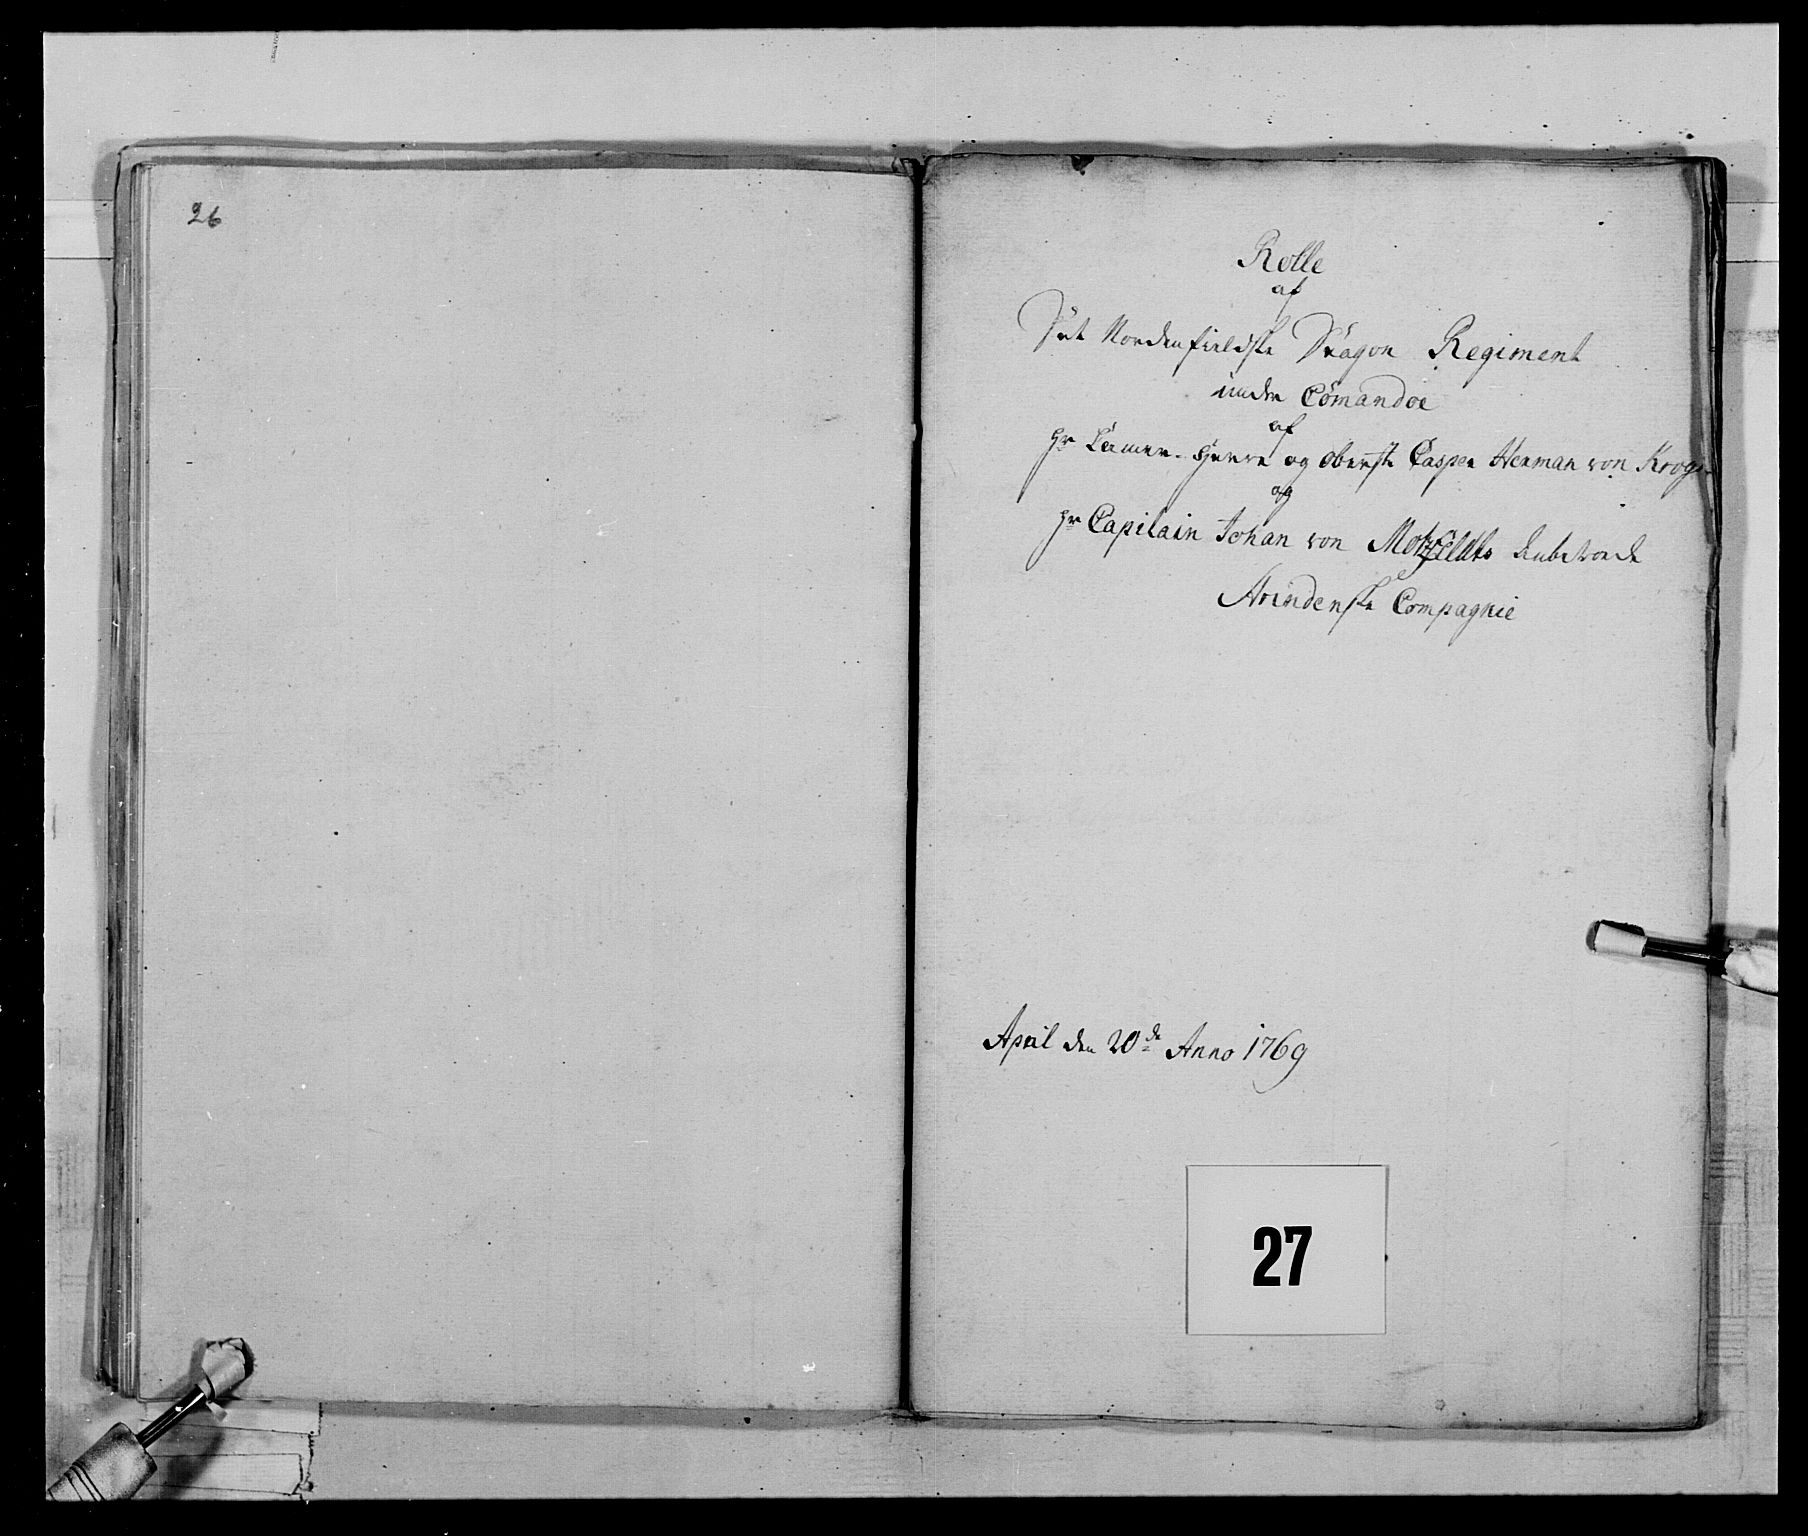 26
Rolle
af
Det Nordenfieldske Dragon Regiment
under Comandoe
af
Hr Camer-Herre og Oberste Casper Herman von Krogs
og
Hr Capitain Johan von Motzfeldts
Compagnie
April den 20de Anno 1769
27